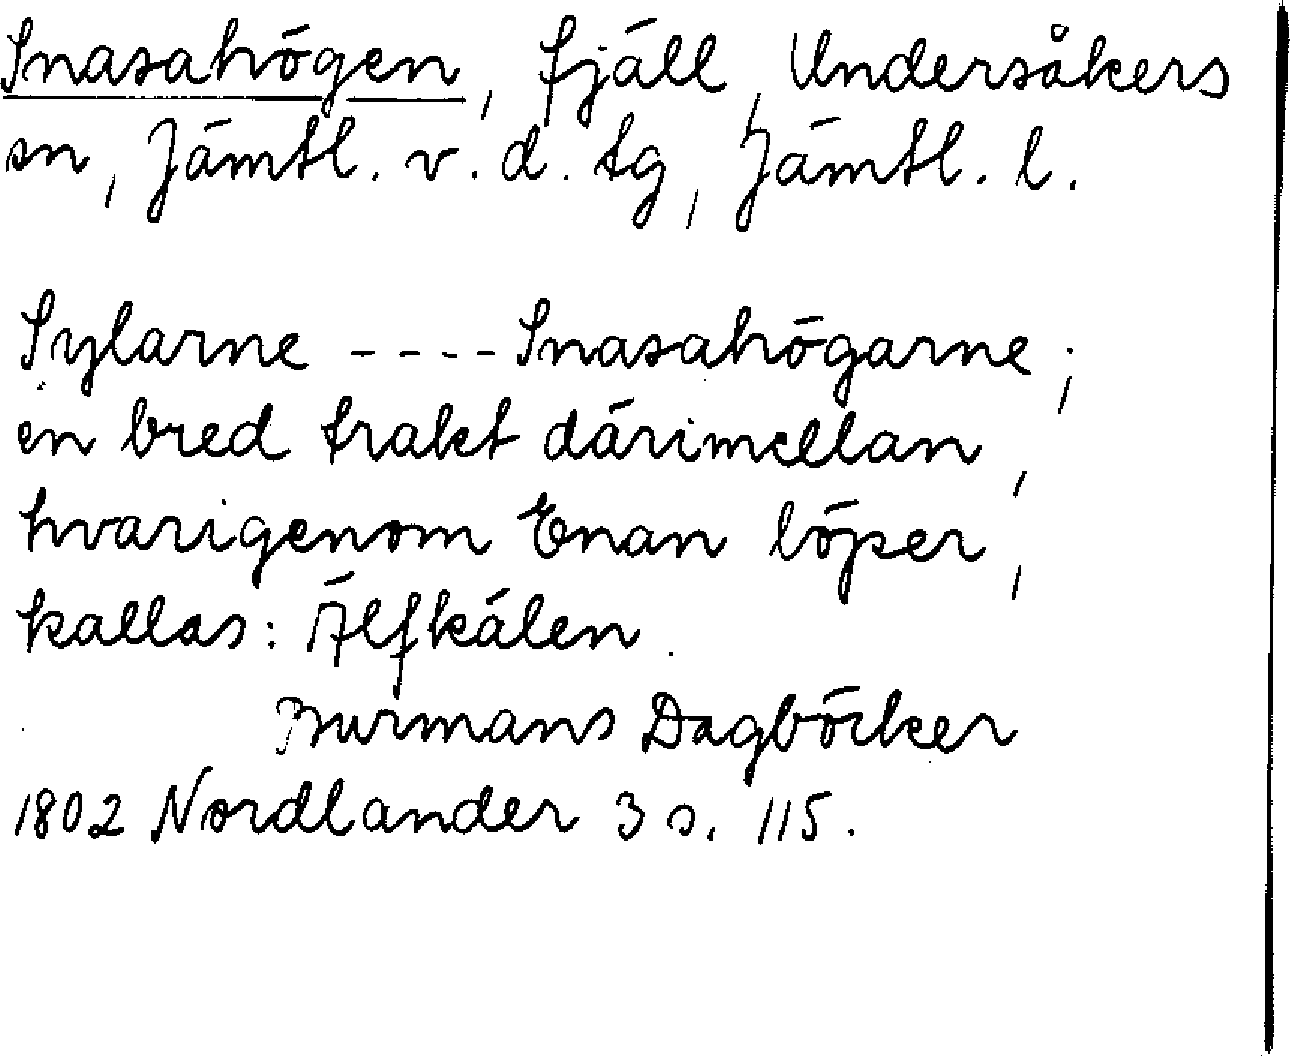 Snasahögen, fjäll, Undersåkers
sn, Jämtl. v. d. tg, Jämtl. l.
Sylarne ---- Snasahögarne;
en bred trakt därimellan,
hvarigenom Enan löper,
kallas: Älfkälen.
Burmans Dagböcker
1802 Nordlander 3 s. 115.